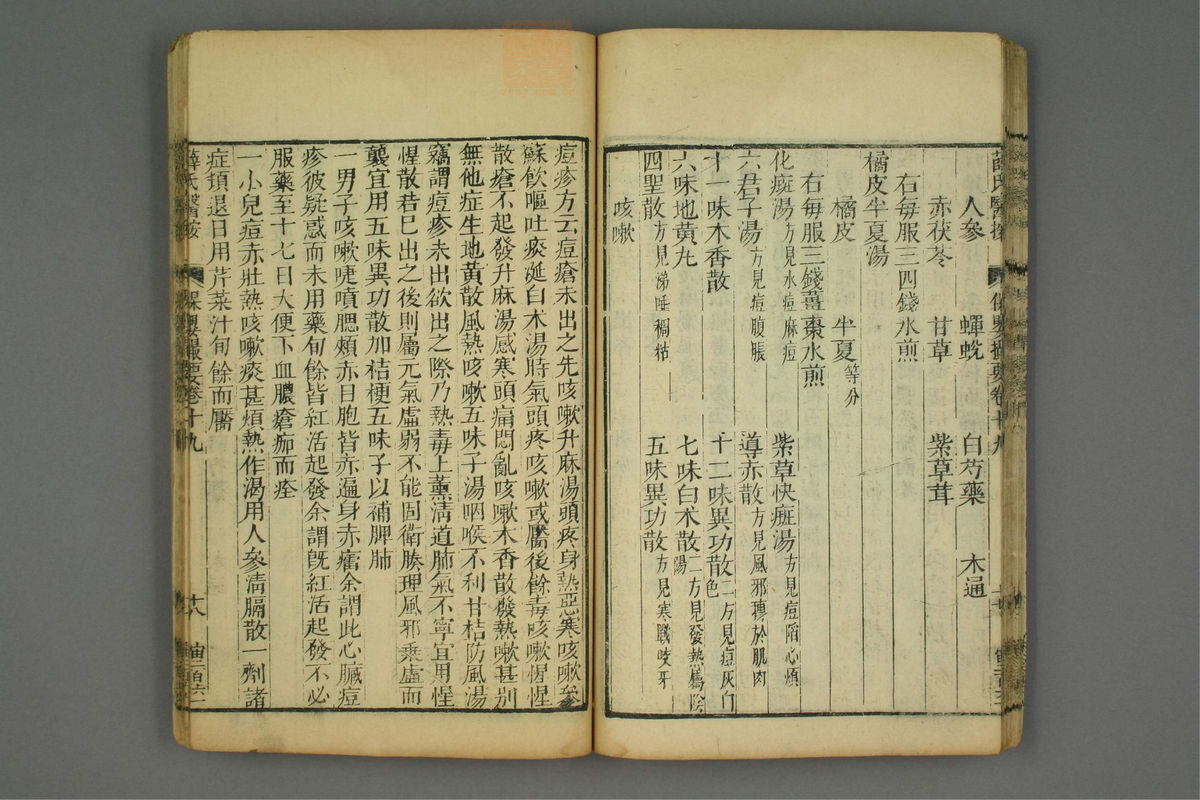 薛氏醫按 保嬰撮要卷十九
人參 蟬蛻 白芍藥 木通
赤茯苓 甘草 紫草茸
右每服三四錢水煎
橘皮半夏湯
橘皮 半夏等分
右每服三錢薑棗水煎
化癍湯方見水痘麻痘 紫草快癍湯方見痘陷心煩
六君子湯方見痘腹脹 導赤散方見風邪摶於肌肉
十一味木香散 十二味異功散二方見痘灰白色
六味地黃丸 七味白朮散二方見發熱屬陰陽
四聖散方見涕唾稠粘 五味異功散方見寒戰咬牙
咳嗽
痘疹方云痘瘡未出之先咳嗽升麻湯頭疼身熱惡寒咳嗽參
蘇飲嘔吐痰涎白朮湯時氣頭疼咳嗽或靨後餘毒咳嗽惺惺
散瘡不起發升麻湯感寒頭痛悶亂咳嗽木香散發熱嗽甚別
無他症生地黃散風熱咳嗽五味子湯咽喉不利甘桔防風湯
竊謂痘疹未出欲出之際乃熱毒上薰清道肺氣不寧宜用惺
惺散若已出之後則屬元氣虛弱不能固衛腠理風邪乘虛而
襲宜用五味異功散加桔梗五味子以補脾肺
一男子咳嗽啑噴腮頰赤目胞皆赤遍身赤癗余謂此心臟痘
疹彼疑惑而未用藥旬餘皆紅活起發余謂既紅活起發不必
服藥至十七日大便下血膿瘡痂而痊
一小兒痘赤壯熱咳嗽痰甚煩熱作渴用人參清膈散一劑諸
症頓退日用芹菜汁旬餘而靨
薛氏醫按 保嬰撮要卷十九 十八